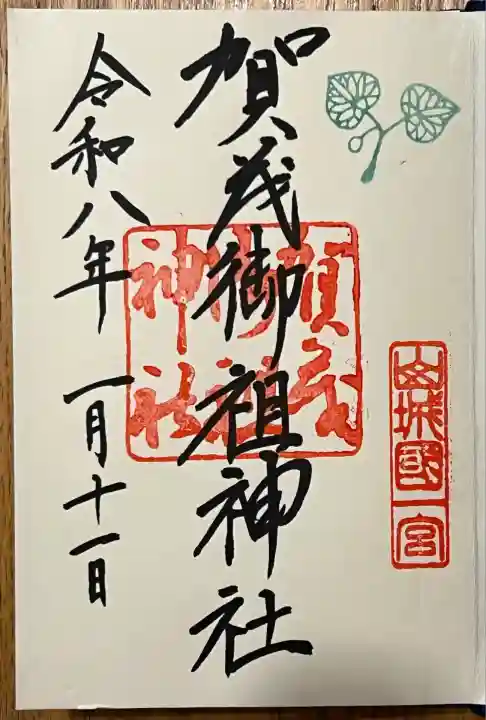 山城國一宮
賀茂御祖神社
賀茂御祖神社
令和八年一月十一日